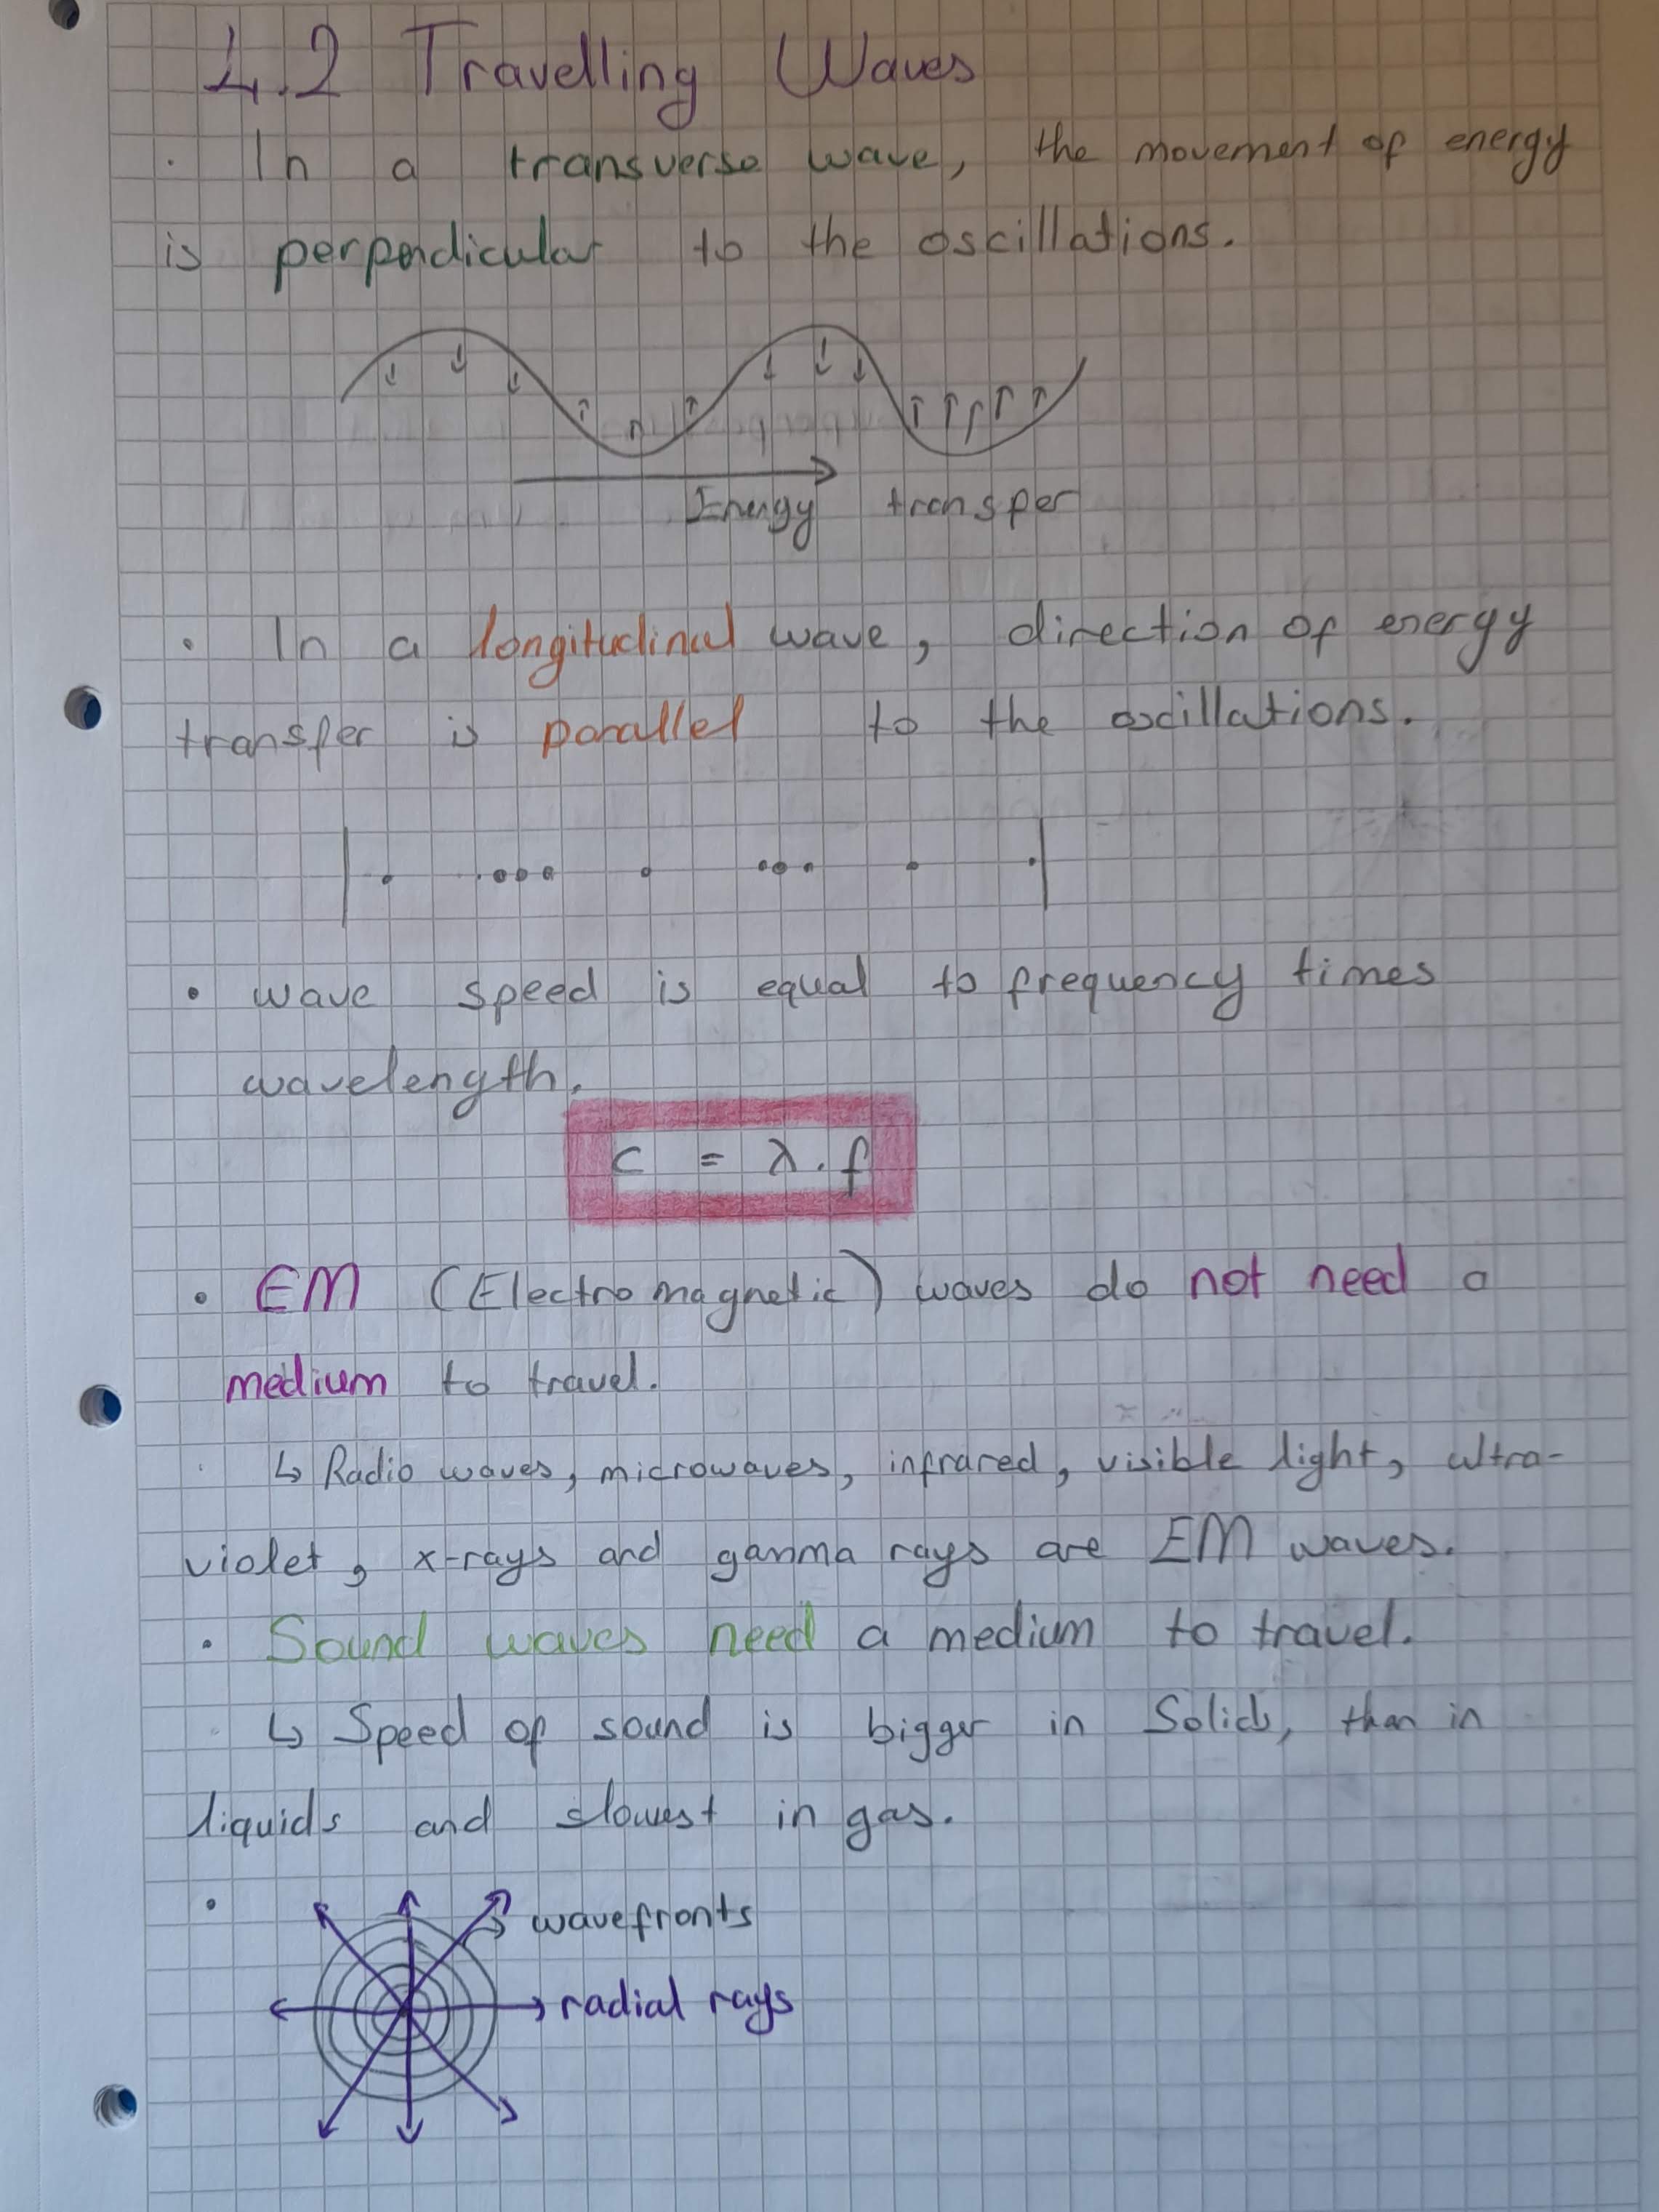 4.2 Travelling Waves
· In a transverse wave, the movement of energy
is perpendicular to the oscillations.
Energy transfer
• In a longitudinal wave, direction of energy
transfer is parallel to the oscillations.
• wave speed is equal to frequency times
wavelength.
c = λ . f
• EM (Electromagnetic) waves do not need a
medium to travel.
↳ Radio waves, microwaves, infrared, visible light, ultra-
violet, x-rays and gamma rays are EM waves.
• Sound waves need a medium to travel.
↳ Speed of sound is bigger in Solids, than in
liquids and slowest in gas.
• wavefronts
radial rays